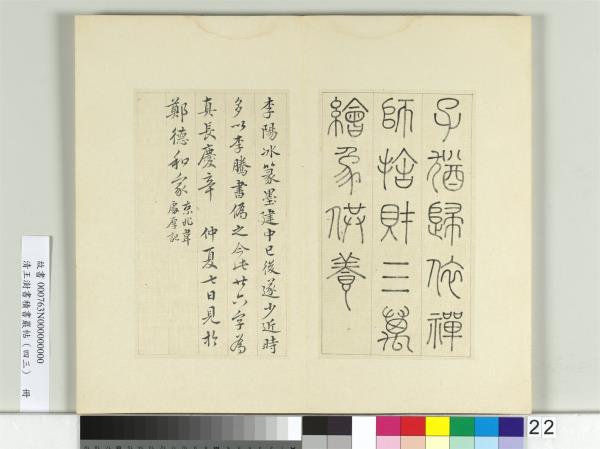 子猶歸依禪
師捨財三萬
繪象供養
李陽冰篆墨建中已後遂少近時
多以李騰書偽之今此廿六字為
真長慶辛 仲夏七日見於
鄭德和家京兆韋
處厚記
故書000763N000000000
清王澍書積書巖帖(四三) 冊
22